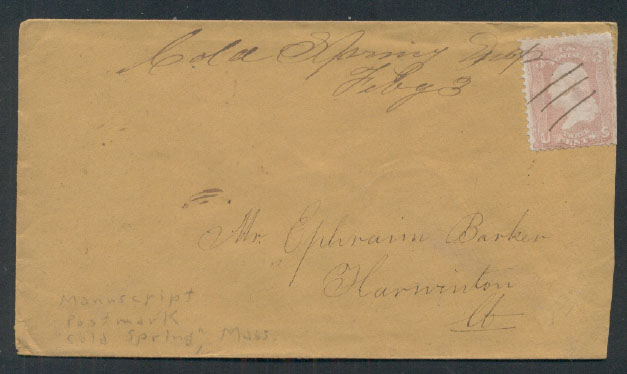 Cold Spring
Feby 3
Mr. Ephraim Barker
Harwinton
Ct
Manuscript
Postmark
"Cold Spring", Mass.
3
U S
CENTS